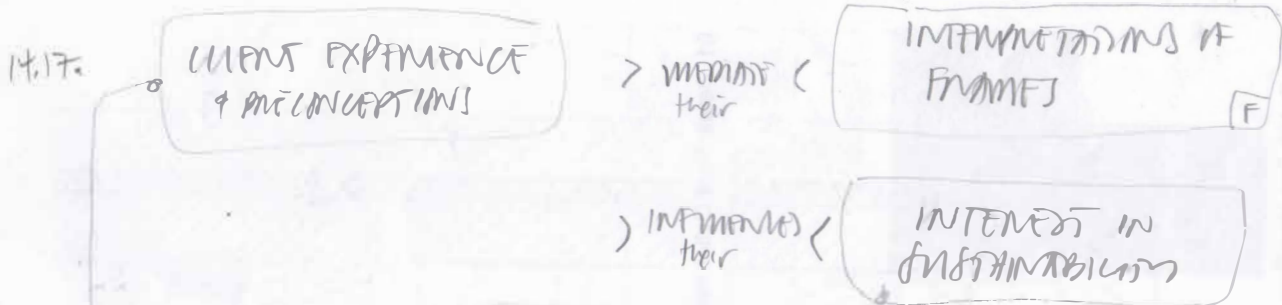 14.17.
CLIENT EXPERIENCE
& PRECONCEPTIONS
> MEDIATE <
their
INTERPRETATIONS OF
FRAMES
F
> INFLUENCES <
their
INTEREST IN
SUSTAINABILITY